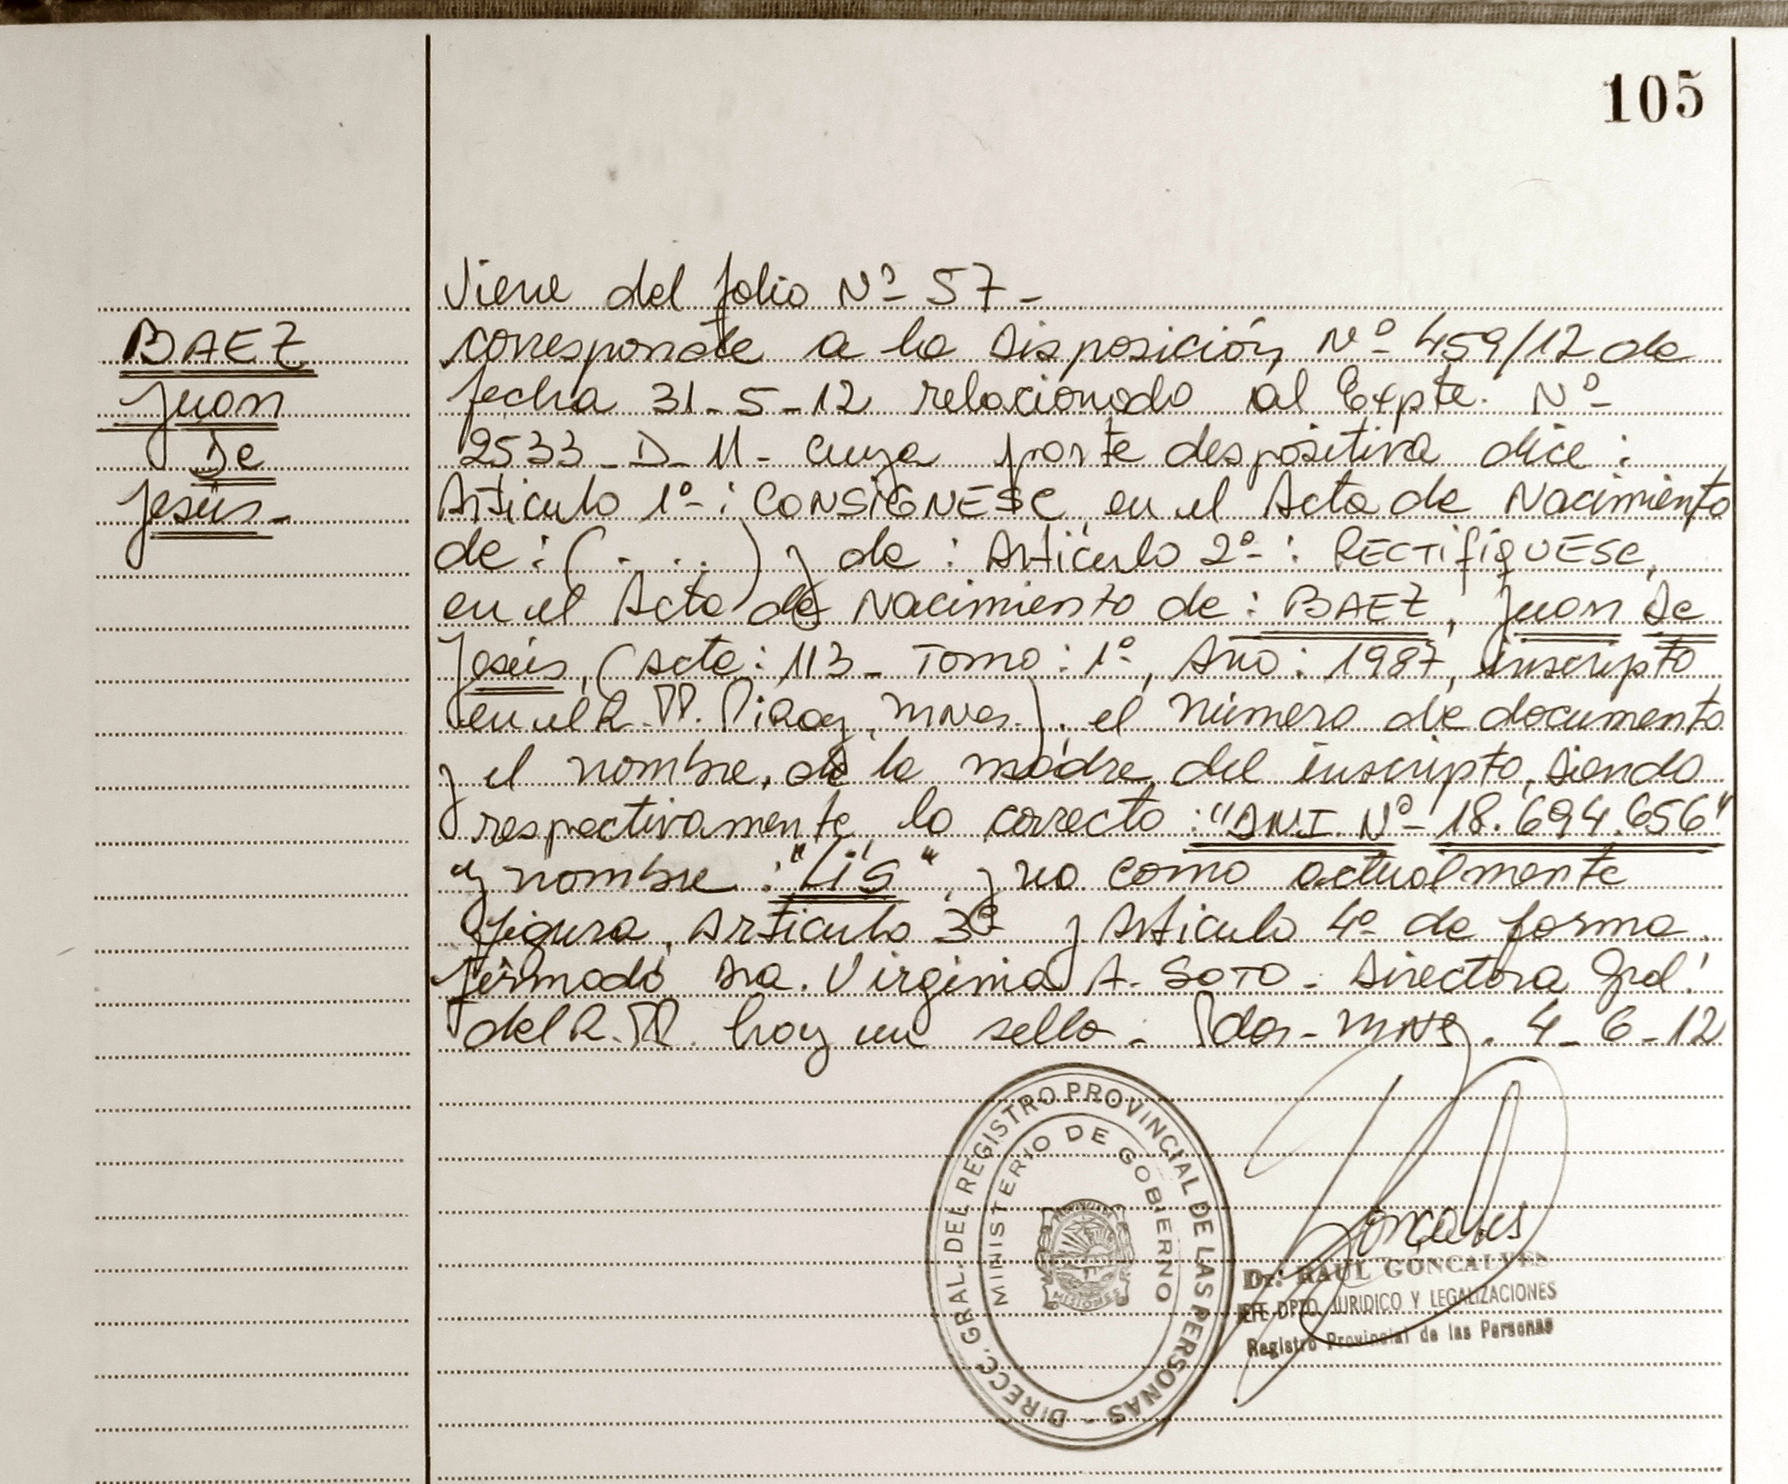 105
Viene del folio Nº 57 -
BAEZ
Juan
De
Jesús -
corresponde a la Disposición Nº 459/12 de
fecha 31-5-12 relacionado al Expte. Nº
2533-D-11- cuya parte despositiva dice :
Artículo 1º- : CONSIGNESE, en el Acta de Nacimiento
de : (.....) y de : Artículo 2º- : RECTIFIQUESE,
en el Acta de Nacimiento de : BAEZ, Juan De
Jesús, (Acta: 113 - Tomo: 1º, Año: 1987, inscripto
en el R.PP. Piray, Mnes.), el número de documento
y el nombre, de la madre del inscripto, siendo
respectivamente lo correcto : "DNI. Nº- 18.694.656"
y nombre : "Lis", y no como actualmente
figura, Artículo 3º y Artículo 4º de forma.
firmado Dra. Virginia A. SOTO - Directora Gral.
del R.PP. hay un sello - Pdas - Mnes. 4-6-12
DIRECC. GRAL. DEL REGISTRO PROVINCIAL DE LAS PERSONAS -
MINISTERIO DE GOBIERNO
MISIONES
Goncalves
Dr. RAUL GONCALVES
JEFE DPTO. JURIDICO Y LEGALIZACIONES
Registro Provincial de las Personas